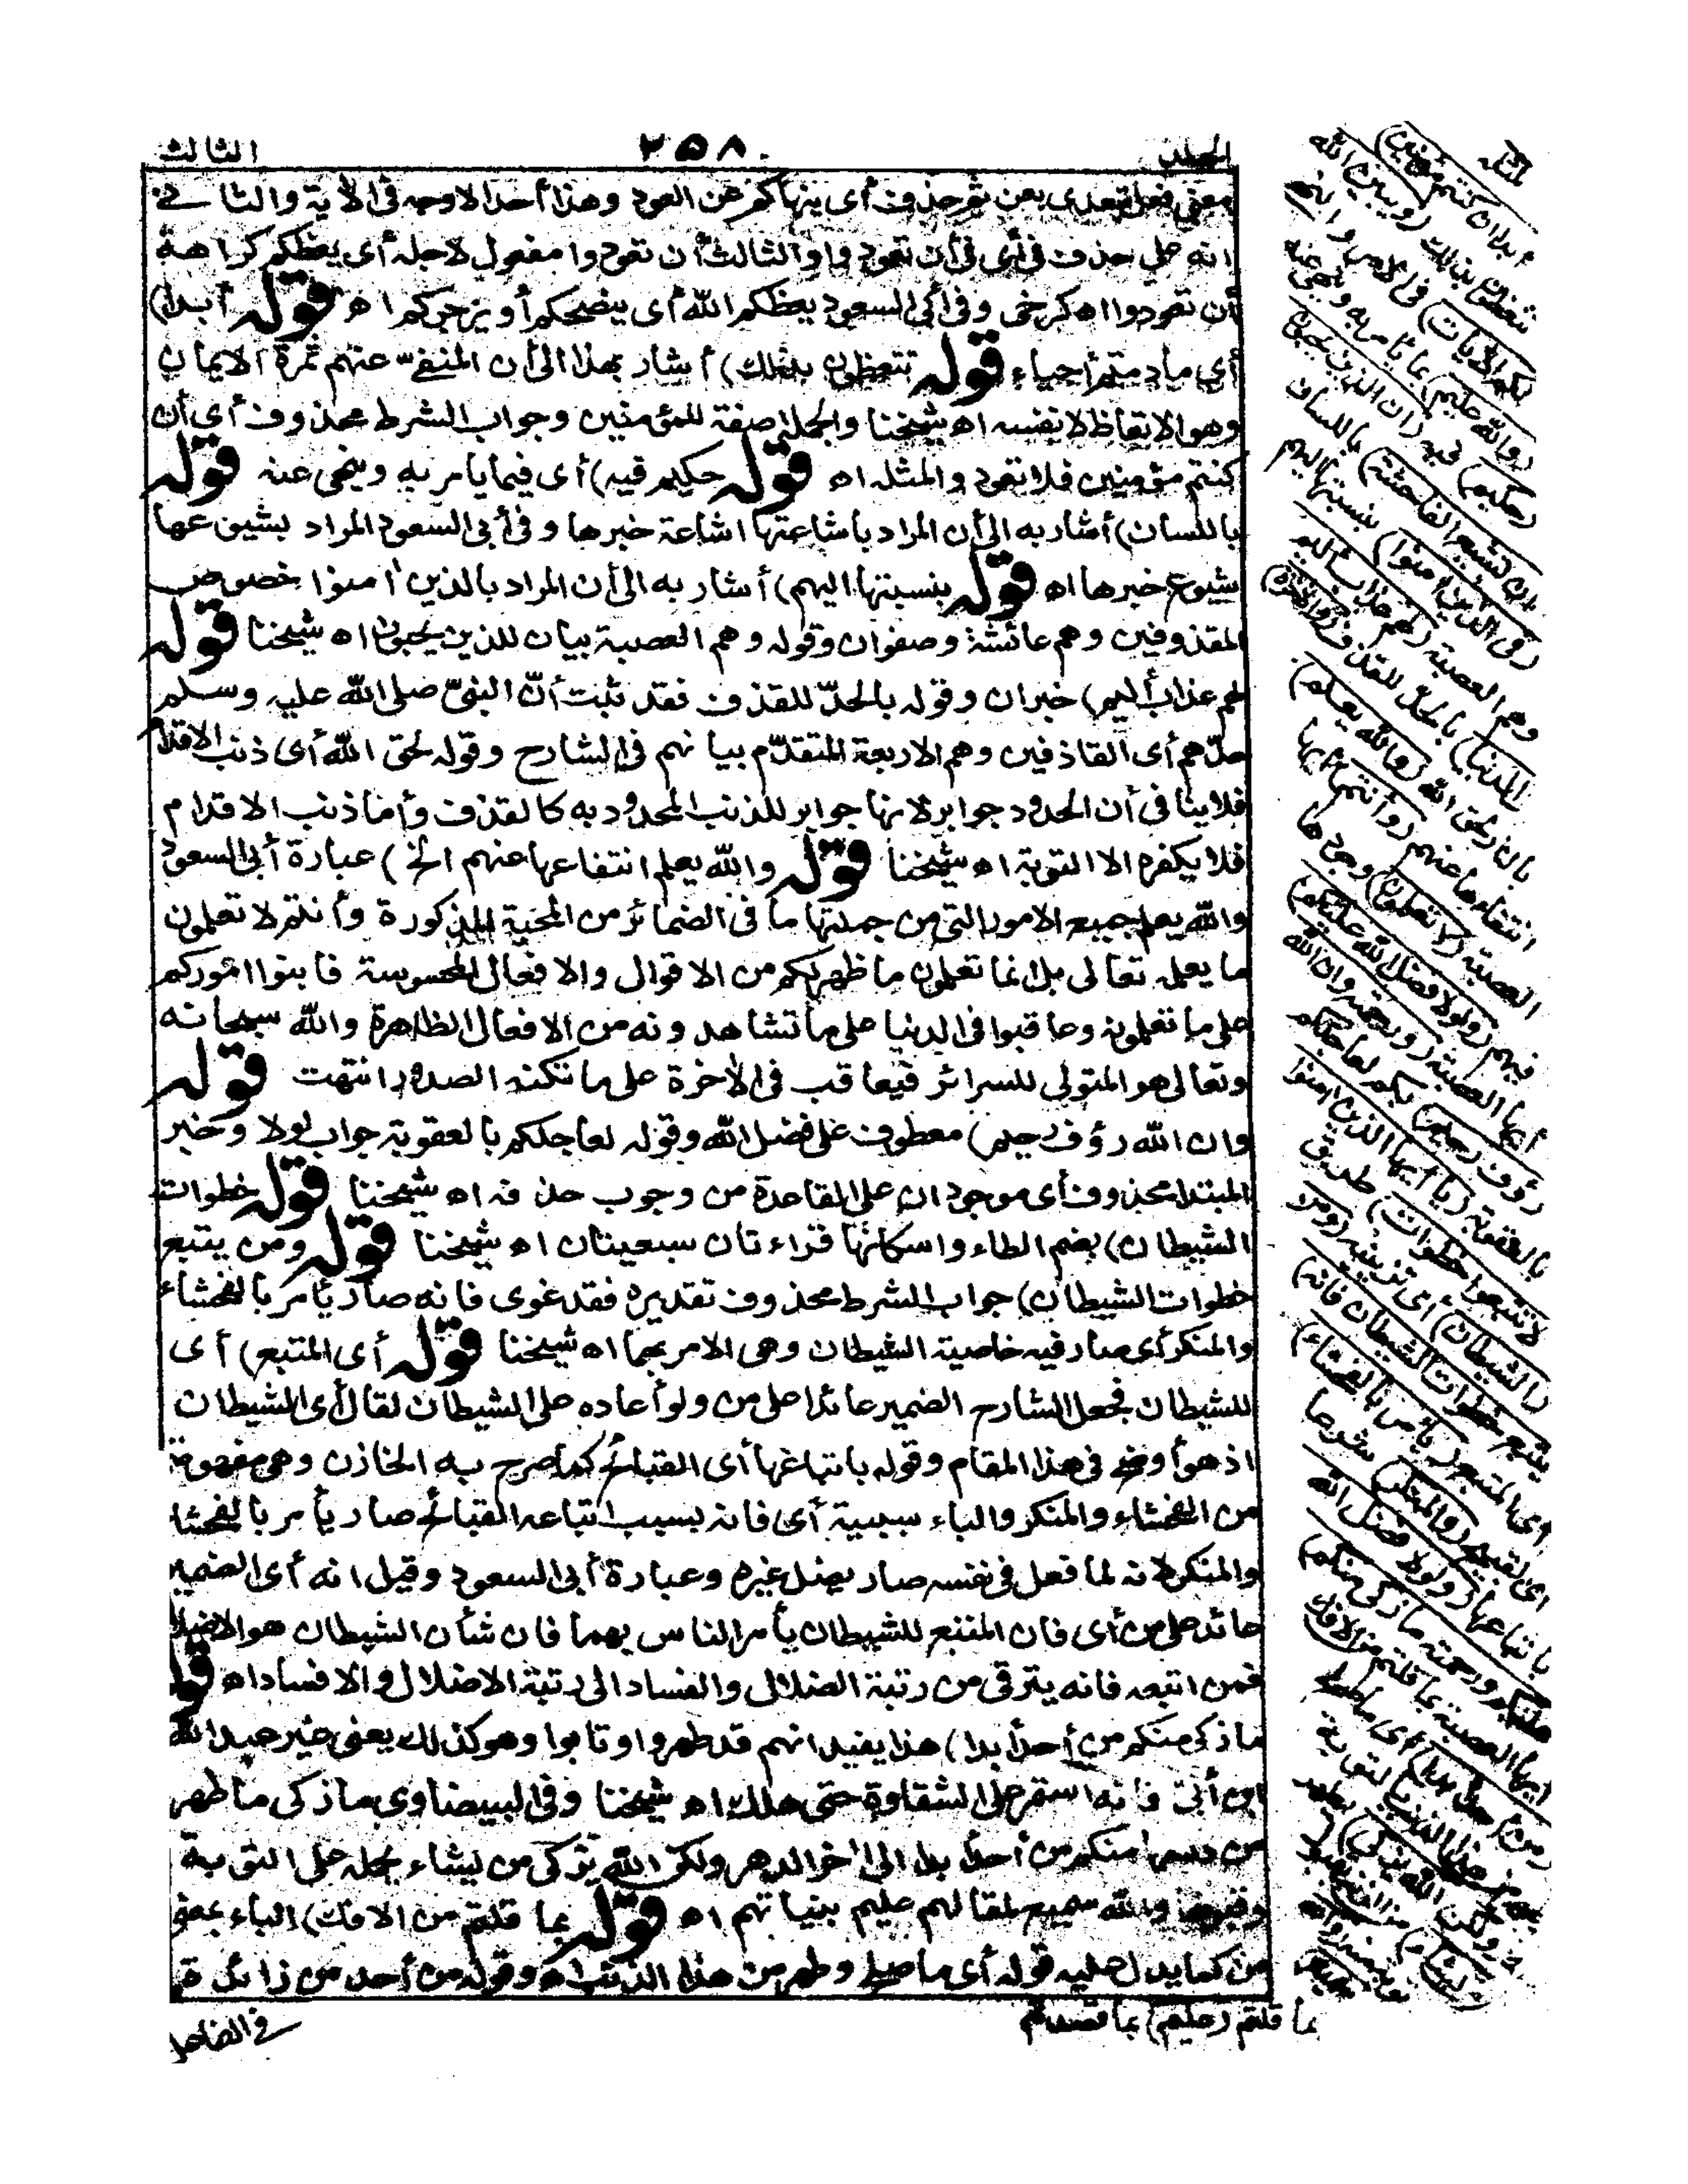 المجلد
٢٥٨
الثالث
معنى فعل تعدى بعن ثم حذف أى ينهاكم عن العود وهذا أحد الاوجه فى الآية والثانى
انه على حذف فى أى فى أن تعودوا والثالث أن تعودوا مفعول لاجله أى يعظكم كراهة
أن تعودوا اه كرخى وفى أبى السعود يعظكم الله أى ينصحكم أو يزجركم اه قوله أبدا)
أى ما دمتم أحياء قوله تتعظون بذلك) أشار بهذا الى أن المنفىّ عنهم ثمرة الايمان
وهو الاتعاظ لا نفسه اه شيخنا والجملة صفة للمؤمنين وجواب الشرط محذوف أى أن
كنتم مؤمنين فلا تعودوا لمثله اه قوله حكيم فيه) أى فيما يأمر به وينهى عنه قوله
باللسان) أشار به الى أن المراد باشاعتها اشاعة خبرها وفى أبى السعود المراد بشيوعها
شيوع خبرها اه قوله بنسبتها اليهم) أشار به الى أن المراد بالذين آمنوا خصوص
المقذوفين وهم عائشة وصفوان وقوله وهم العصبة بيان للذين يحبون اه شيخنا قوله
لهم عذاب أليم) خبر ان وقوله بالحدّ للقذف فقد ثبت أنّ النبىّ صلى الله عليه وسلم
حدّهم أى القاذفين وهم الاربعة المتقدّم بيانهم فى الشارح وقوله لحق الله أى ذنب الاقدام
فلا ينافى أن الحدود جوابر لانها جوابر للذنب المحدود به كالقذف وأما ذنب الاقدام
فلا يكفره الا التوبة اه شيخنا قوله والله يعلم انتفاءها عنهم الخ) عبارة أبى السعود
والله يعلم جميع الامور التى من جملتها ما فى الضمائر من المحبة المذكورة وأنتم لا تعلمون
ما يعلمه تعالى بل انما تعلمون ما ظهر لكم من الاقوال والافعال المحسوسة فابنوا اموركم
على ما تعلمون وعاقبوا فى الدنيا على ما تشاهدونه من الافعال الظاهرة والله سبحانه
وتعالى هو المتولى للسرائر فيعاقب فى الآخرة على ما تكنه الصدور انتهت قوله
وان الله رؤف رحيم) معطوف على فضل الله وقوله لعاجلكم بالعقوبة جواب لولا وخبر
المبتدا محذوف أى موجودان على القاعدة من وجوب حذفه اه شيخنا قوله خطوات
الشيطان) بضم الطاء واسكانها قراءتان سبعيتان اه شيخنا قوله ومن يتبع
خطوات الشيطان) جواب الشرط محذوف تقديره فقد غوى فانه صار يأمر بالفحشاء
والمنكر أى صار فيه خاصية الشيطان وهى الامر بهما اه شيخنا قوله أى المتبع) أى
للشيطان فجعل الشارح الضمير عائدا على من ولو أعاده على الشيطان لقال أى الشيطان
اذ هو أوضح فى هذا المقام وقوله باتباعها أى القبائح كما صرح به الخازن وهى مفهومة
من الفحشاء والمنكر والباء سببية أى فانه بسبب اتباعه القبائح صار يأمر بالفحشاء
والمنكر لانه لما فعل فى نفسه صار يضل غيره وعبارة أبى السعود وقيل انه أى الضمير
عائد على من أى فان المتبع للشيطان يأمر الناس بهما فان شأن الشيطان هو الاضلال
فمن اتبعه فانه يترقى من رتبة الضلال والفساد الى رتبة الاضلال والافساد اه قوله
ما زكى منكم من أحد أبدا) هذا يفيد انهم قد طهروا وتابوا وهو كذلك يعنى غير عبد الله
ابن أبىّ فانه استمر على الشقاوة حتى هلك اه شيخنا وفى البيضاوى ما زكى ما طهر
من دنسها منكم من أحد أبدا الى آخر الدهر ولكن الله يزكى من يشاء بحمله على التوبة
وقبولها والله سميع لمقالهم عليم بنياتهم اه قوله بما قلتم من الافك) الباء بمعنى
من كما يدل عليه قوله أى ما صلح وطهر من هذا الذنب اه وقوله من أحد من زائدة
فى الفاعل
لمثله
أبدا ان كنتم مؤمنين)
تتعظون بذلك (ويبين الله
لكم الآيات) فى الامر والنهى
(والله عليم) بما يأمر به وينهى عنه
(حكيم) فيه (ان الذين يحبون
ان تشيع الفاحشة) باللسان
(فى الذين آمنوا) بنسبتها اليهم
وهم العصبة (لهم عذاب أليم
فى الدنيا) بالحد للقذف (والآخرة)
بالنار لحق الله (والله يعلم)
انتفاءها عنهم (وأنتم) أيها
العصبة (لا تعلمون) وجودها
فيهم (ولولا فضل الله عليكم)
أيها العصبة (ورحمته وان الله
رؤف رحيم) بكم لعاجلكم
بالعقوبة (يا أيها الذين آمنوا
لا تتبعوا خطوات) طريق
(الشيطان) أى تزيينه (ومن
يتبع خطوات الشيطان فانه)
أى المتبع (يأمر بالفحشاء)
أى القبيح (والمنكر) شرعا
باتباعها (ولولا فضل الله
عليكم ورحمته ما زكى منكم)
أيها العصبة بما قلتم من الافك
(من أحد أبدا) أى ما صلح
بما قلتم (عليم) بما قصدتم